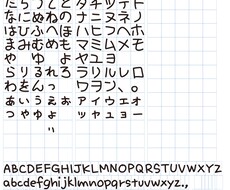 たちつてと タチツテト
なにぬねの ナニヌネノ
はひふへほ ハヒフヘホ
まみむめも マミムメモ
や ゆ よ ヤユヨ
らりるれろ ラリルレロ
わをんっ ワヲン、。
ぁぃぅぇぉ ァィゥェォ
っゃゅょ ッャュョ
ABCDEFGHIJKLMNOPQRSTUVWXYZ
abcdefghijklmnopqrstuvwxyz.,